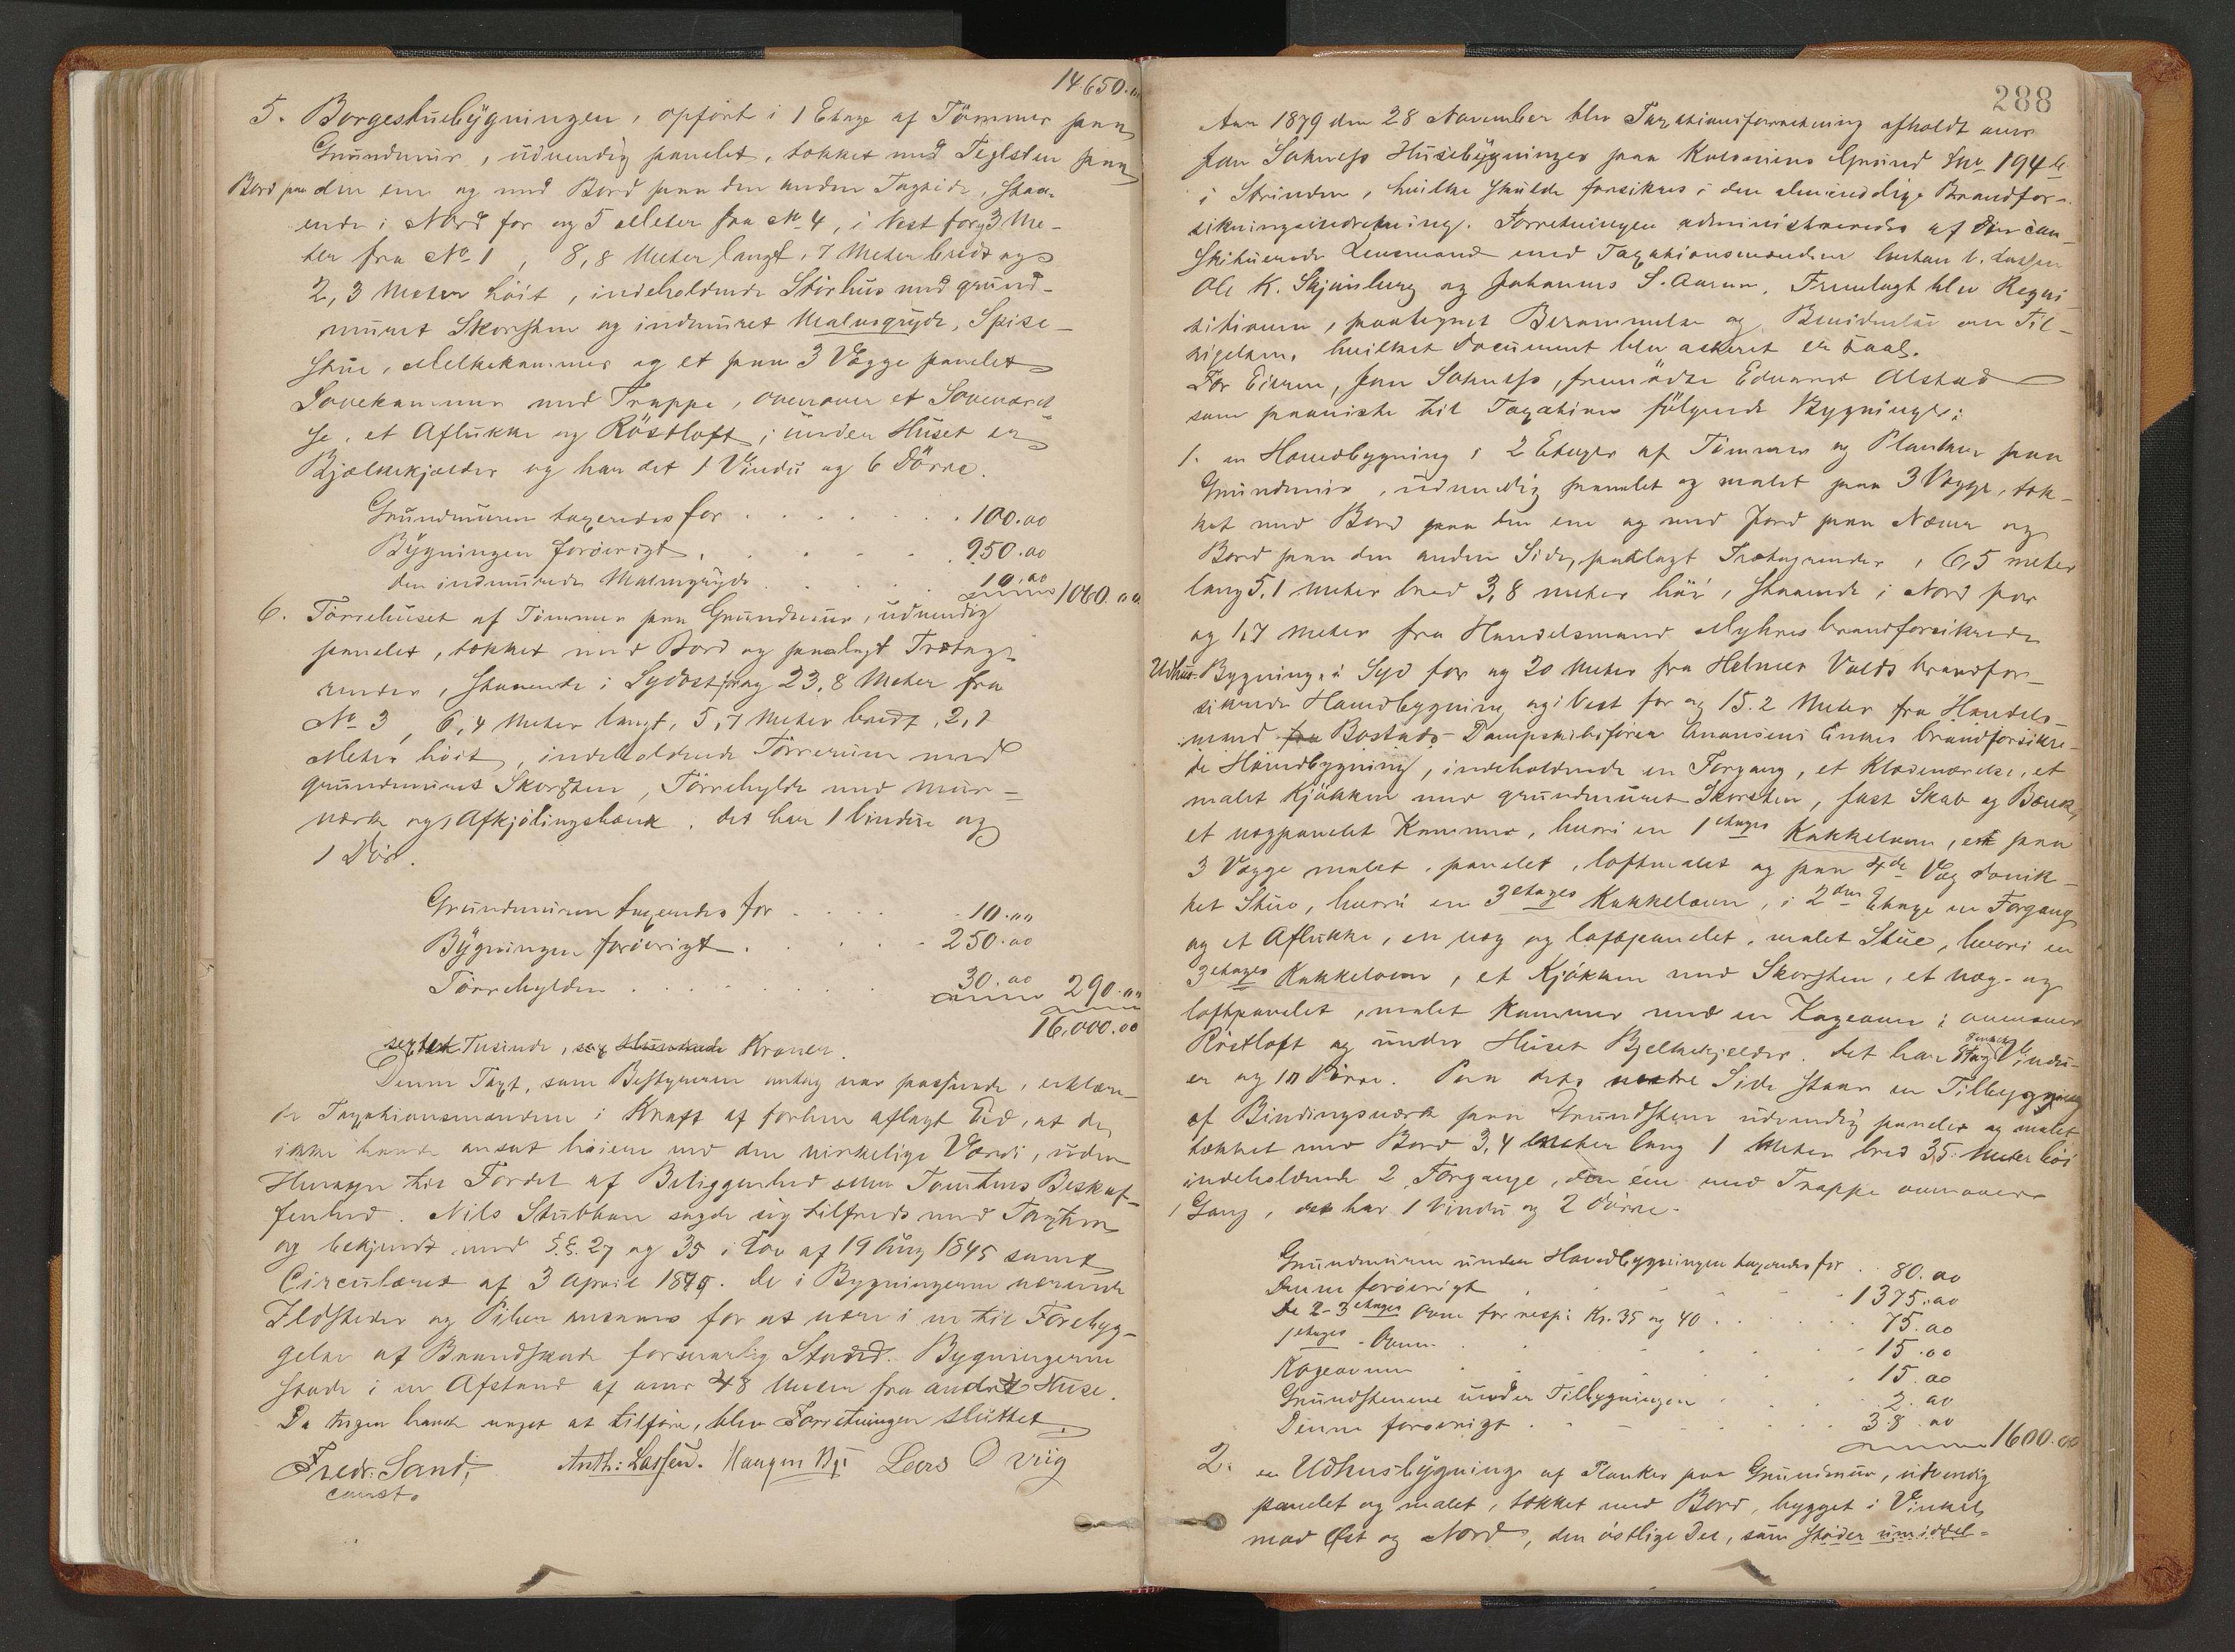 14650.00
5. Borgestuebygningen, opført i 1 Etage af Tømmer paa
Grundmuur, udvendig panelet, tækket med Teglsten paa
Bord paa den ene og med Bord paa den anden Tagside, staa-
ende i Nord for og 5 Meter fra No 4, i Vest for og 3 Me-
ter fra No 1, 8,8 Meter langt, 7 Meter bredt og
2,3 Meter høit, indeholdende Stirhus med grund-
muret Skorsten og indmuret Malmgryde, Spise-
stue, Melkekammer og et paa 3 Vægge panelet
Sovekammer med Trappe, ovenover et Soveværel-
se, et Aflukke og Röstloft; under Huset er
Bjælkekjælder og har det 1 Vindu og 6 Dørre.
Grundmuren taxeredes for 100.00
Bygningen forøvrigt 950.00
den indmurede Malmgryde 10.00 1060.00
6. Tørrehuset af Tømmer paa Grundmuur, udvendig
panelet, tækket med Bord og paalagt Trætag-
render, staaende i Sydost for og 23,8 Meter fra
No 3, 6,4 Meter langt, 5,7 Meter bredt, 2,1
Meter høit, indeholdende Tørrerum med
grundmuret Skorsten, Tørrehylde med Mur-
værk og 1 Afkjølingsbænk, det har 1 Vindu og
1 Dør.
Grundmuren taxeredes for 10.00
Bygningen forøvrigt 250.00
Tørrehylden 30.00 290.00
16,000.00
sexten Tusinde, Kroner.
Denne Taxt, som Bestyreren antog var passende, erklære-
de Taxationsmændene i Kraft af forhen aflagt Eed, at de
ikke havde ansat høiere end den virkelige Værdi, uden
Hensyn til Fordel af Beliggenhed eller Tomtens Beskaf-
fenhed. Nils Stubban sagde sig tilfreds med Taxten
og bekjendt med §.§. 27 og 35 i Lov af 19 Aug 1845 samt
Circulæret af 3 April 1879. De i Bygningerne værende
Ildsteder og Piber ansaaes for at være i en til Forebyg-
gelse af Brandskade forsvarlig Stand. Bygningerne
stode i en Afstand af over 48 Meter fra andre Huse.
Da Ingen havde noget at tilføre, blev Forretningen sluttet
Fredr: Sand, Anth: Lassen. Haugen Lars Øvrig
const.
288
Aar 1879 den 28 November blev Taxationsforretning afholdt over
Jan Saknes Huusebygninger paa Grund Lno 194 b
i Strinden, hvilke skulde forsikres i den almindelige Brandfor-
sikringsindretning. Forretningen administreredes af den con-
stituerede Lensmand med Taxationsmændene L. Lassen
Ole K. Skjænsberg og Johannes S. Aarun. Fremlagt blev Reqvi-
sitionen, paategnet Berammelse og Bevidnelse om Til-
sigelsen, hvilket Document blev acteret saal.
For Eieren, Jan Saknes, fremmødte Edvard Alstad
som paaviste til Taxation følgende Bygninger:
1. en Hovedbygning i 2 Etager af Tømmer og Planker paa
Grundmuur, udvendig panelet og malet paa 3 Vægge, tæk-
ket med Bord paa den ene og med Jord paa Næver og
Bord paa den anden Side, paalagt Trætagrender, 6,5 meter
lang 5,1 meter bred 3,8 meter høi, staaende i Nord for
og 1,7 meter fra Handelsmand Myhres brandforsikrede
Udhus-Bygning, i Syd for og 20 Meter fra Helmer Volds brandfor-
sikrede Hovedbygning og i Vest for og 15.2 Meter fra Handels-
mand Bostads - Dampskibsfører Enkes brandforsikre-
de Hovedbygning, indeholdende en Forgang, et Klædeværelse, et
malet Kjøkken med grundmuret Skorsten, fast Skab og Bænk,
et vægpanelet Kammer, hvori en 1etages Kakkelovn, en paa
3 Vægge malet, panelet, loftmalet og paa 4de Væg
ket Stue, hvori en 3etages Kakkelovn, i 2den Etage en Forgang
og et Aflukke, en væg og loftpanelet, malet Stue, hvori en
3etages Kakkelovn, et Kjøkken med Skorsten, et væg- og
loftpanelet, malet Kammer med en Kogeovn; ovenover
Röstloft og under Huset Bjelkekjelder. Det har Vindu-
er og 10 Dørre. Paa dets vestre Side staar en Tilbygning
af Bindingsværk paa Grundstene udvendig panelet og malet
tækket med Bord 3,4 Meter lang 1 Meter bred 3,5 Meter høi
indeholdende 2 Forgange, den ene med Trappe ovenover
1 Gang, det har 1 Vindu og 2 Dørre.
Grundmuren under Hovedbygningen taxeredes for 80.00
Denne forøvrigt 1375.00
De 2 - 3etages Ovne for resp: Kr. 35 og 40 75.00
1etages - Ovnen 15.00
Kogeovnen 15.00
Grundstenene under Tilbygningen 2.00
Denne forøvrigt 38.00
1600.00
2. en Udhusbygning af Planker paa Grundmuur, udvendig
panelet og malet, tækket med Bord, bygget i Vinkel
mod Øst og Nord, den østlige Del, som støder umiddel-